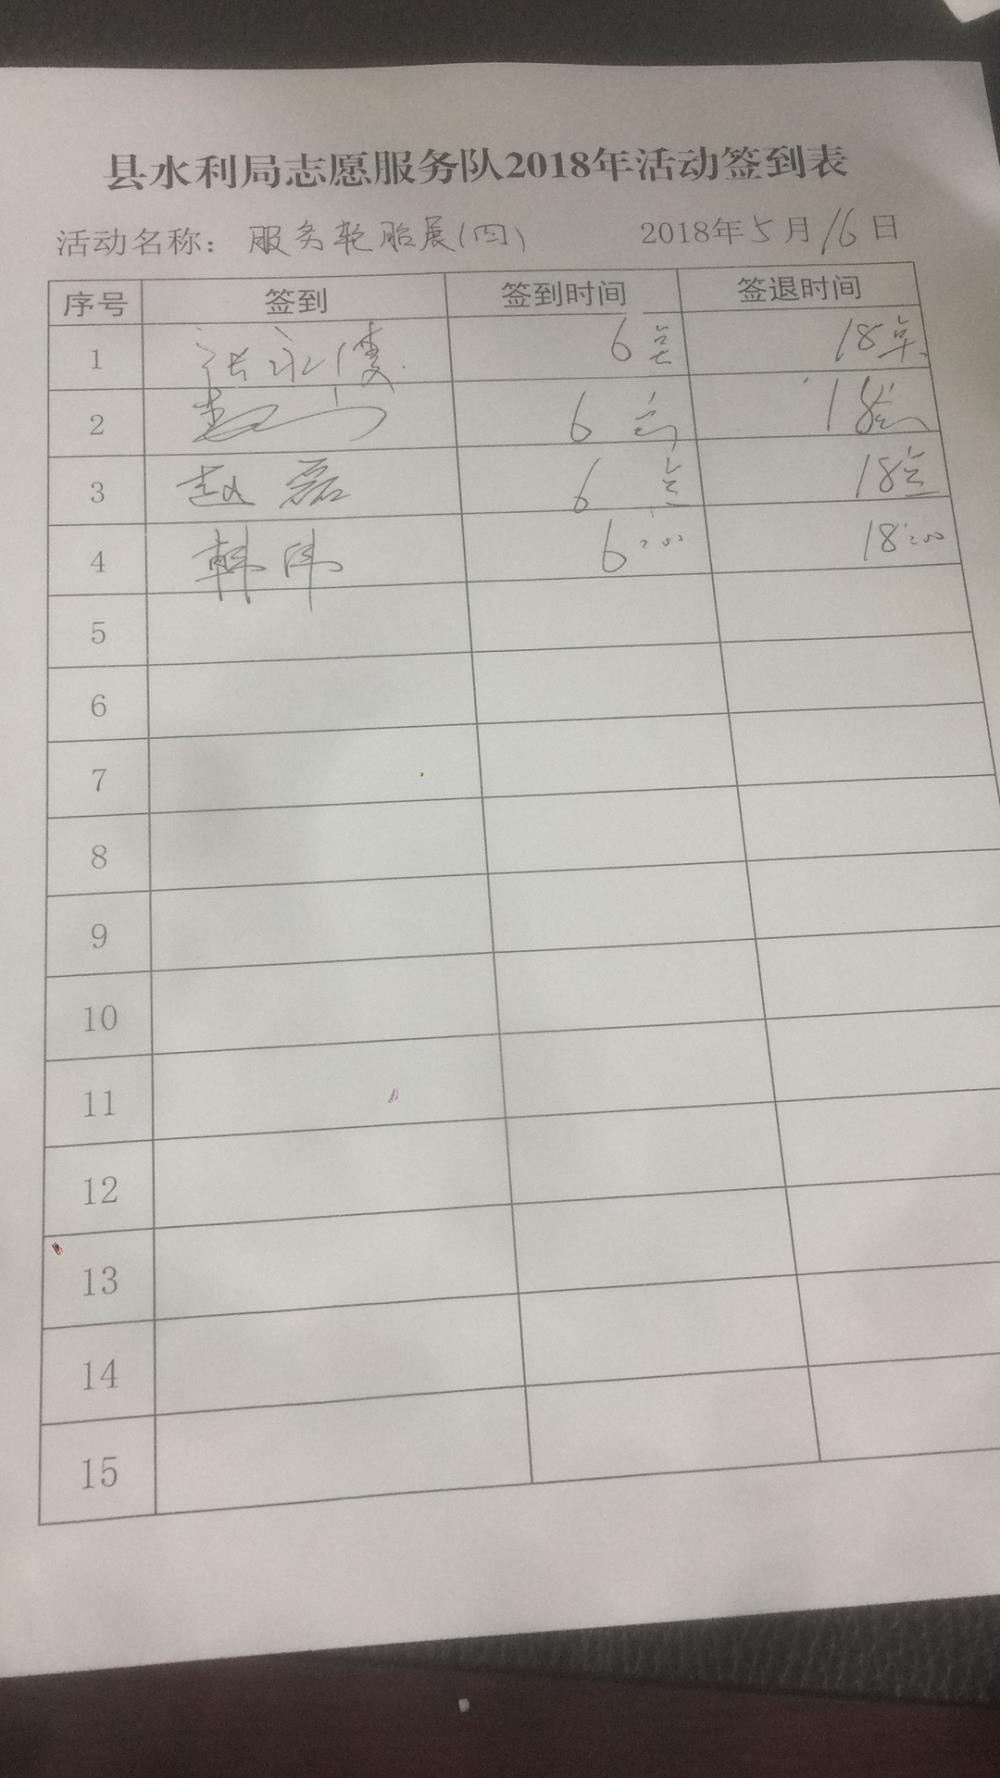 县水利局志愿服务队2018年活动签到表
活动名称：服务轮胎展(四) 2018年5月16日
序号 签到 签到时间 签退时间
1 张永 6点 18点
2 6点 18点
3 赵磊 6点 18点
4 韩伟 6:00 18:00
5
6
7
8
9
10
11
12
13
14
15